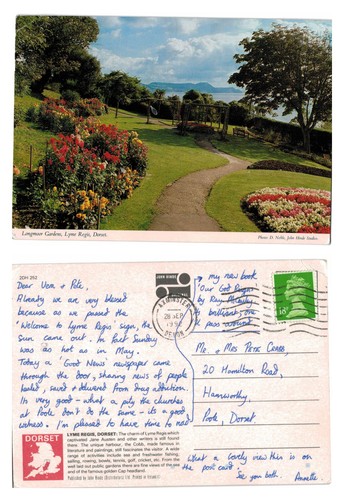 Langmoor Gardens, Lyme Regis, Dorset.
Photo: D. Noble, John Hinde Studios.
2DH 252
Dear Vera & Pete,
Already we are very blessed
because as we passed the
'Welcome to Lyme Regis' sign, the
sun came out. In fact Sunday
was as hot as in May.
Today a 'Good News' newspaper came
through the door, sharing news of people
healed, saved & delivered from drug addiction.
It's very good - what a pity the churches
at Poole don't do the same - it's a good
witness. I'm pleased to have time to read
my new book
'Our God Reigns'
by Ray
It's brilliant, one
pass around.
JOHN HINDE
28 SEP
DEVON
18
Mr. & Mrs Pete Crabb,
20 Hamilton Road,
Hamworthy,
Poole, Dorset.
What a lovely view this is on
the post card.
See you both.
Annette
DORSET
LYME REGIS, DORSET: The charm of Lyme Regis which
captivated Jane Austen and other writers is still found
there. The unique harbour, the Cobb, made famous in
literature and paintings, still fascinates the visitor. A wide
range of activities include sea and freshwater fishing,
sailing, rowing, bowls, tennis, golf, cricket, etc. From the
well laid out public gardens there are fine views of the sea
and of the famous golden Cap headland.
Published by John Hinde